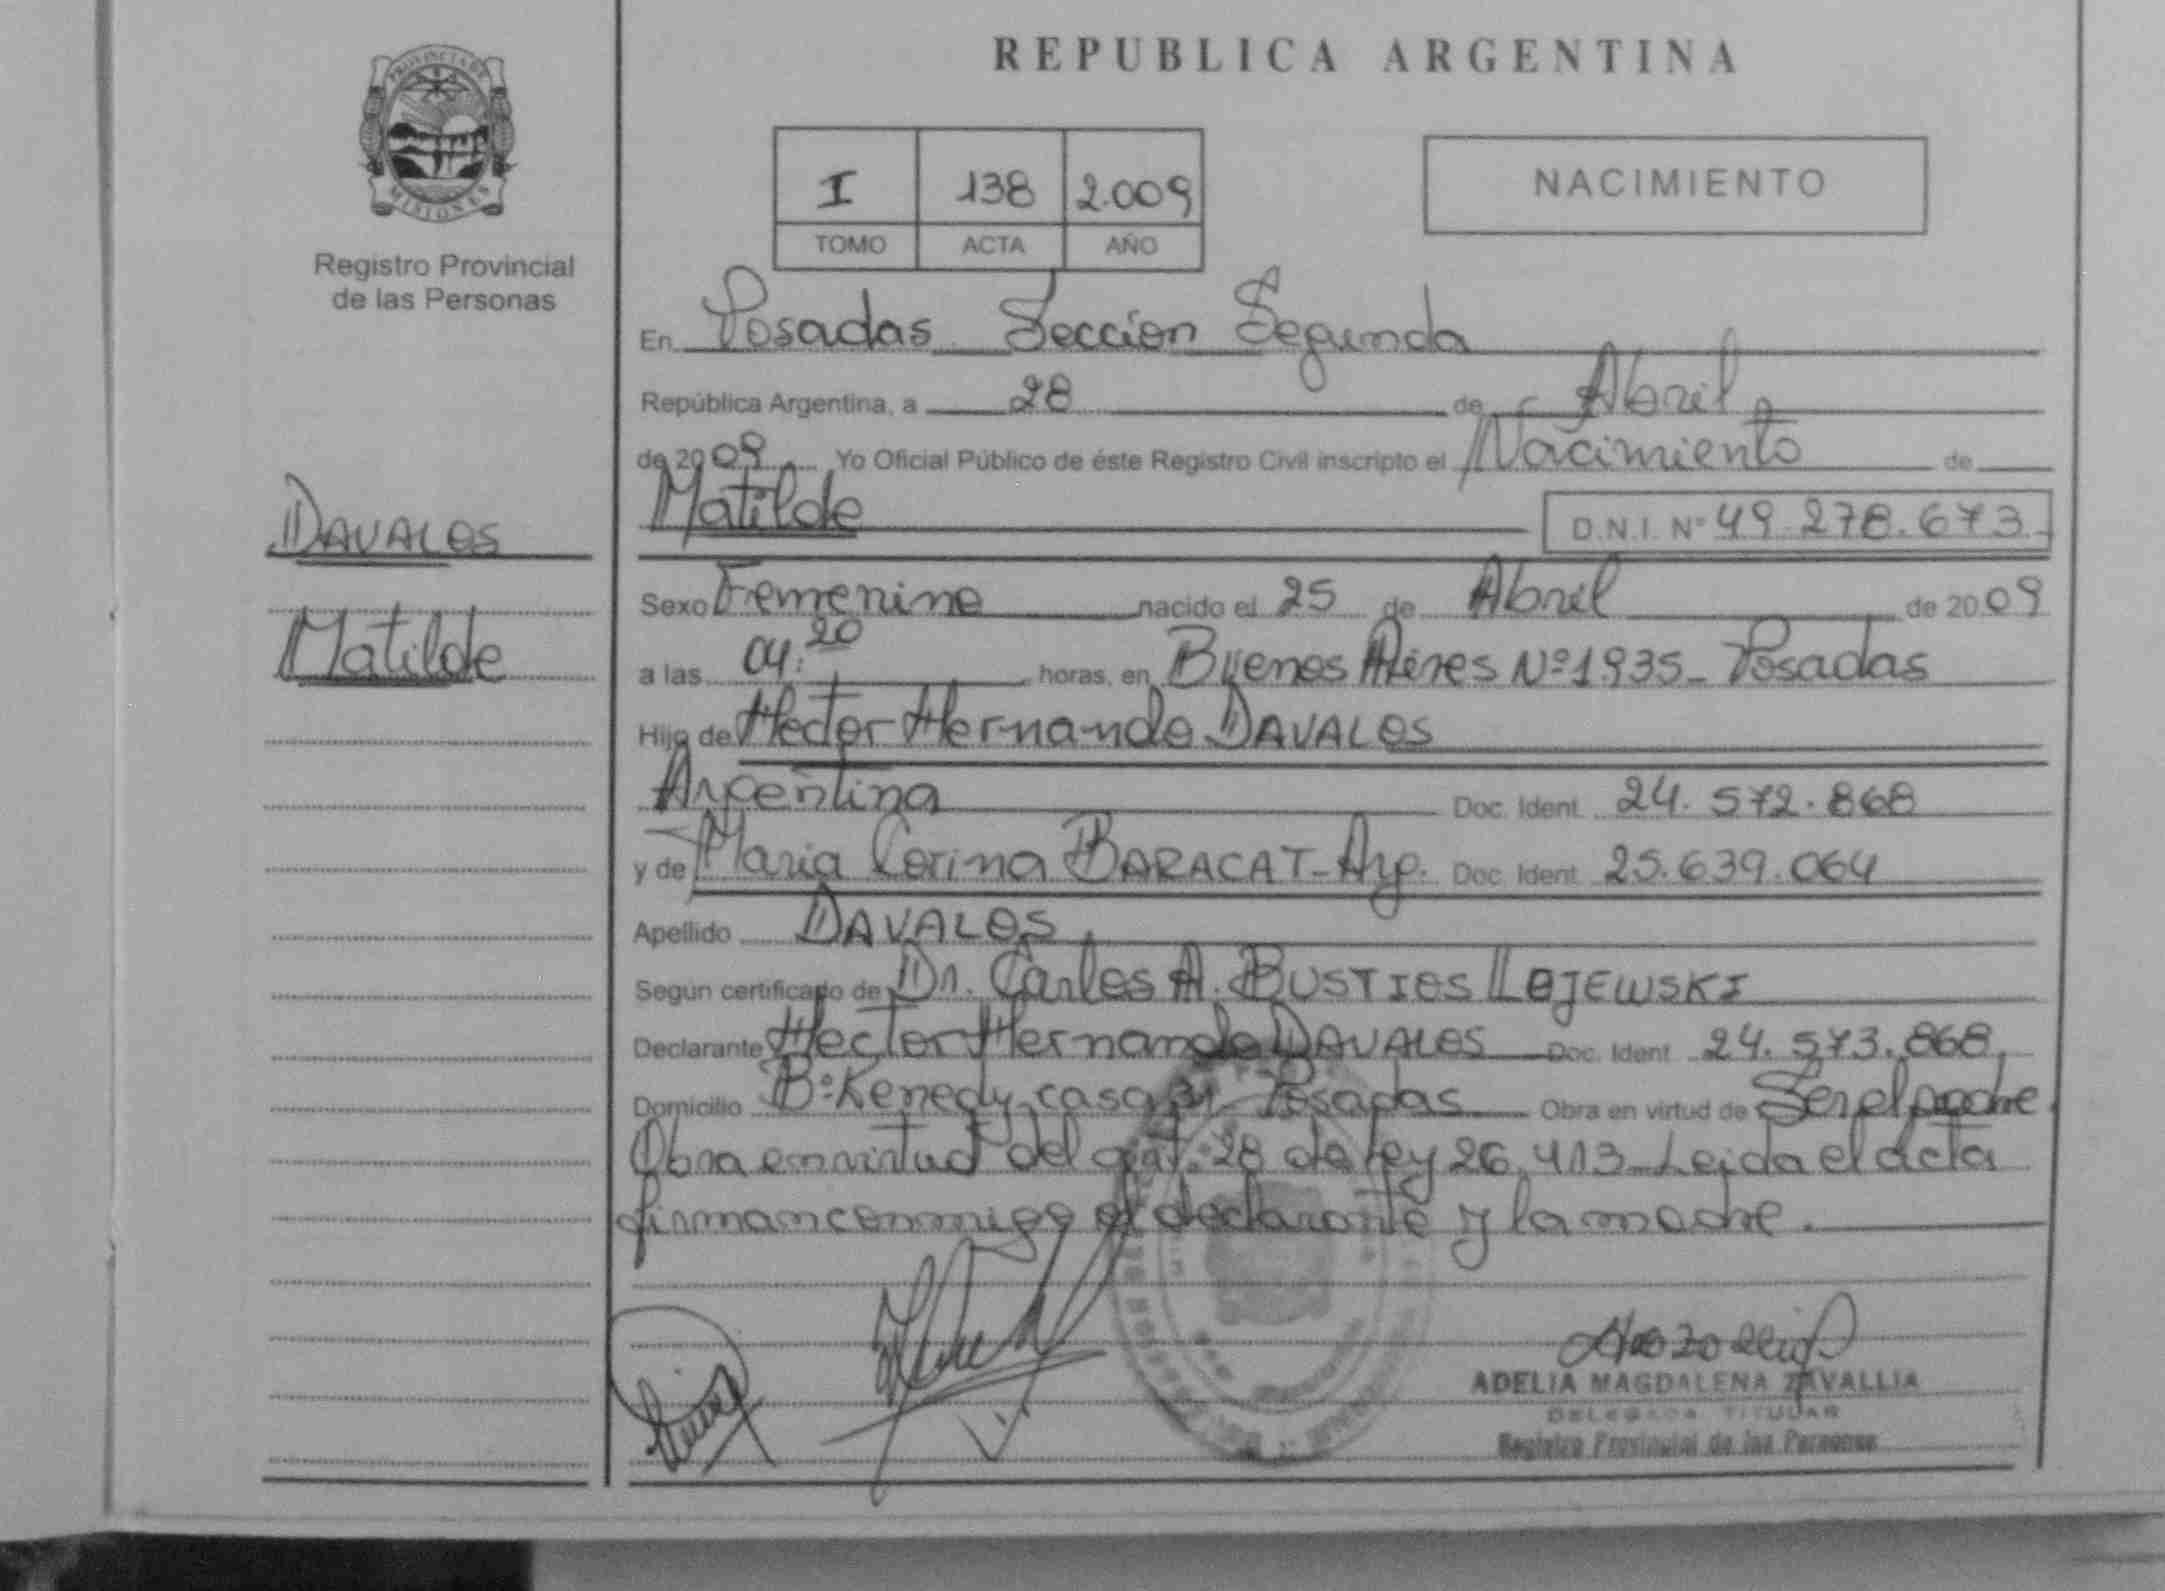 PROVINCIA DE
MISIONES
Registro Provincial
de las Personas
DAVALOS
Matilde
REPUBLICA ARGENTINA
I 138 2.009
TOMO ACTA AÑO
NACIMIENTO
En Posadas Sección Segunda
República Argentina, a 28 de Abril
de 2009 Yo Oficial Público de éste Registro Civil inscripto el Nacimiento de
Matilde D.N.I. Nº 49.278.673.
Sexo Femenino nacido el 25 de Abril de 2009
a las 04:20 horas, en Buenos Aires Nº 1935_ Posadas
Hijo de Hector Hernando DAVALOS
Argentina Doc. Ident. 24.572.868
y de Maria Corina BARACAT_Arg. Doc. Ident. 25.639.064
Apellido DAVALOS
Según certificado de Dr. Carlos A. BUSTIOS LOJEWSKI
Declarante Hector Hernando DAVALOS Doc. Ident. 24.573.868
Domicilio Bº Kenedy casa Posadas Obra en virtud de Ser el padre
Obra en virtud del art. 28 de ley 26.413_Leida el acta
firman conmigo el declarante y la madre.
ADELIA MAGDALENA ZAVALLIA
DELEGADA TITULAR
Registro Provincial de las Personas